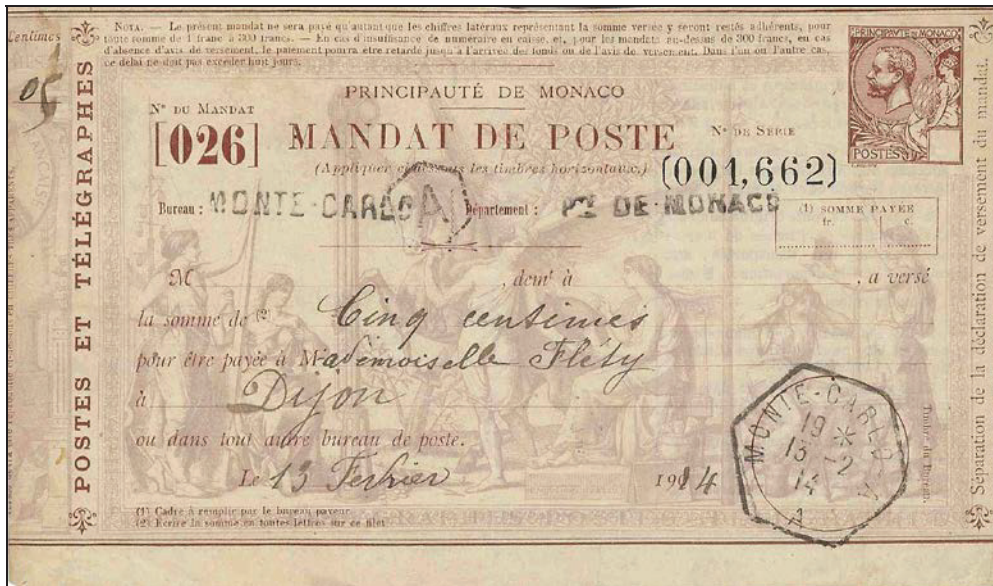 Centimes
05
NOTA. — Le présent mandat ne sera payé qu'autant que les chiffres latéraux représentant la somme versée y seront restés adhérents, pour
toute somme de 1 franc à 300 francs. — En cas d'insuffisance de numéraire en caisse, et, pour les mandats au-dessus de 300 francs, en cas
d'absence d'avis de versement, le paiement pourra être retardé jusqu'à l'arrivée des fonds ou de l'avis de versement. Dans l'un ou l'autre cas,
ce délai ne doit pas excéder huit jours.
PRINCIPAUTÉ DE MONACO
POSTES
POSTES ET TÉLÉGRAPHES
PRINCIPAUTÉ DE MONACO
N° DU MANDAT
[026]
MANDAT DE POSTE
N° DE SÉRIE
(001,662)
(Appliquer ci-dessous les timbres horizontaux.)
Bureau : MONTE-CARLO A Département : PTÉ DE MONACO
(1) SOMME PAYÉE
fr. c.
M , demt à , a versé
la somme de (2) Cinq centimes
pour être payée à Mademoiselle Fléty
à Dijon
ou dans tout autre bureau de poste.
Le 13 Février 1914
MONTE-CARLO A
19 *
13 -2
14
A
(1) Cadre à remplir par le bureau payeur.
(2) Écrire la somme en toutes lettres sur ce filet.
Séparation de la déclaration de versement du mandat.